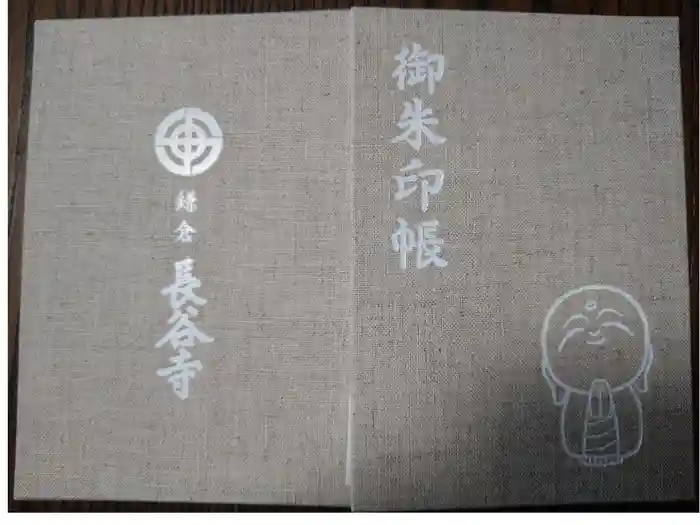 御朱印帳
鎌倉
長谷寺